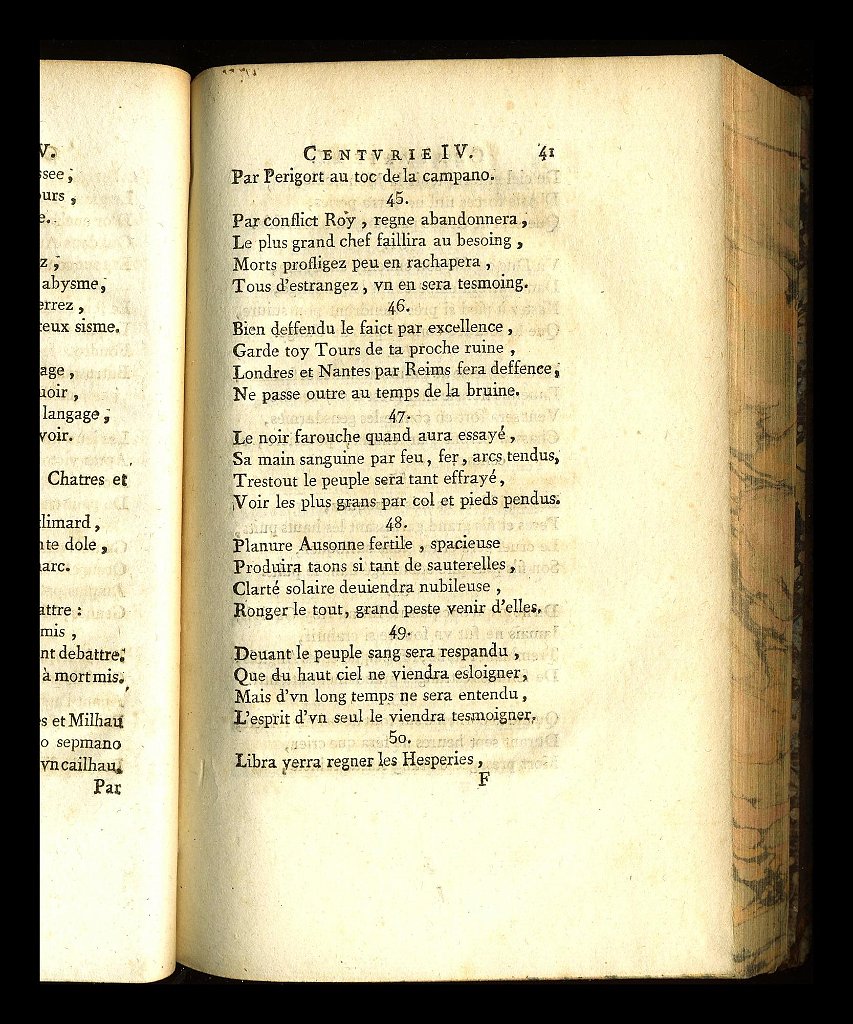 V.
ssee,
ours,
e.
z,
abysme,
errez,
ceux sisme.
age,
uoir,
langage,
voir.
Chatres et
limard,
nte dole,
arc.
attre :
mis,
nt debattre.
à mort mis.
s et Milhau
o sepmano
vn cailhau.
Par
CENTVRIE IV. 41
Par Perigort au toc de la campano.
45.
Par conflict Roy, regne abandonnera,
Le plus grand chef faillira au besoing,
Morts profligez peu en rachapera,
Tous d'estrangez, vn en sera tesmoing.
46.
Bien deffendu le faict par excellence,
Garde toy Tours de ta proche ruine,
Londres et Nantes par Reims fera deffence,
Ne passe outre au temps de la bruine.
47.
Le noir farouche quand aura essayé,
Sa main sanguine par feu, fer, arcs tendus,
Trestout le peuple sera tant effrayé,
Voir les plus grans par col et pieds pendus.
48.
Planure Ausonne fertile, spacieuse
Produira taons si tant de sauterelles,
Clarté solaire deuiendra nubileuse,
Ronger le tout, grand peste venir d'elles.
49.
Deuant le peuple sang sera respandu,
Que du haut ciel ne viendra esloigner,
Mais d'vn long temps ne sera entendu,
L'esprit d'vn seul le viendra tesmoigner.
50.
Libra verra regner les Hesperies,
F